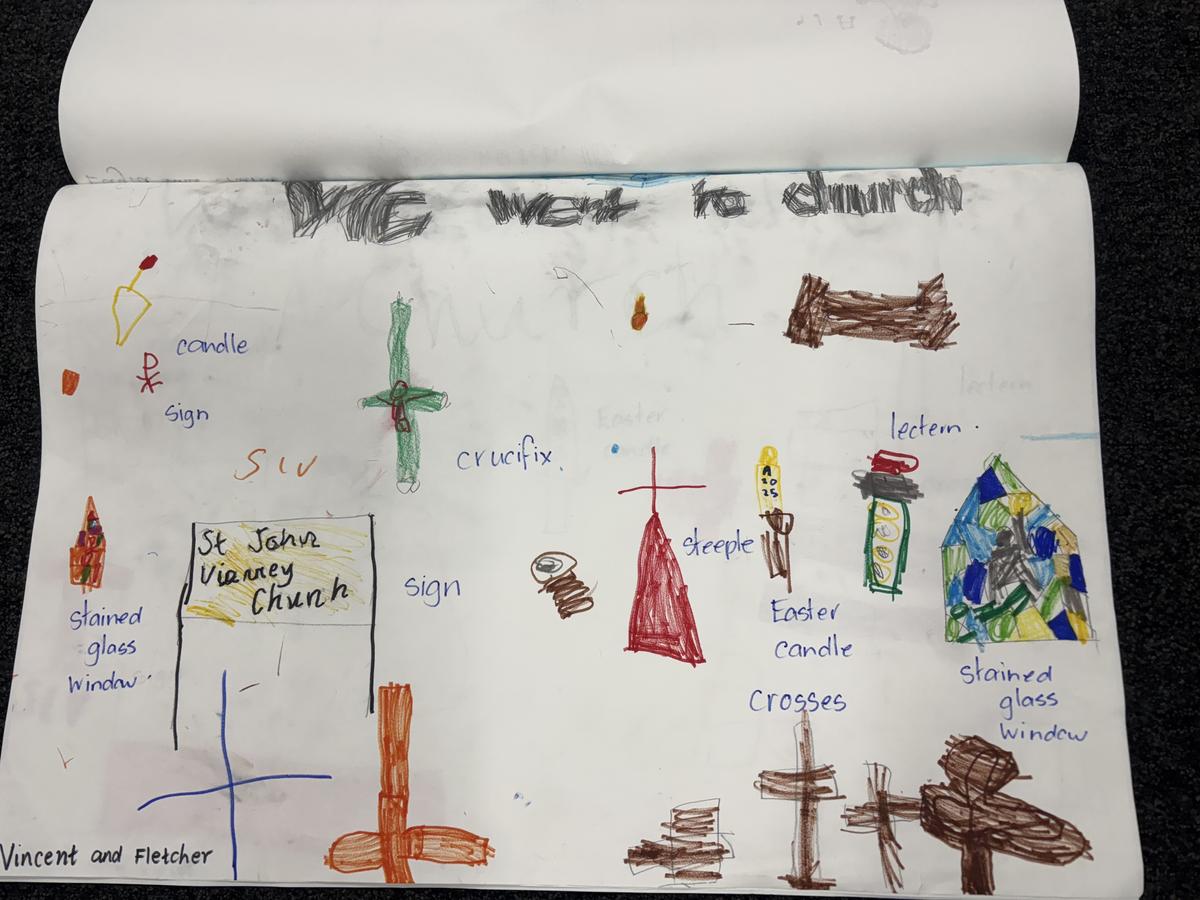 WE went to church
candle
sign
SIV
crucifix.
lectern.
A
20
25
steeple
St John
Vianney
Chunh
sign
Easter
candle
stained
glass
window.
stained
glass
window
Crosses
Vincent and Fletcher